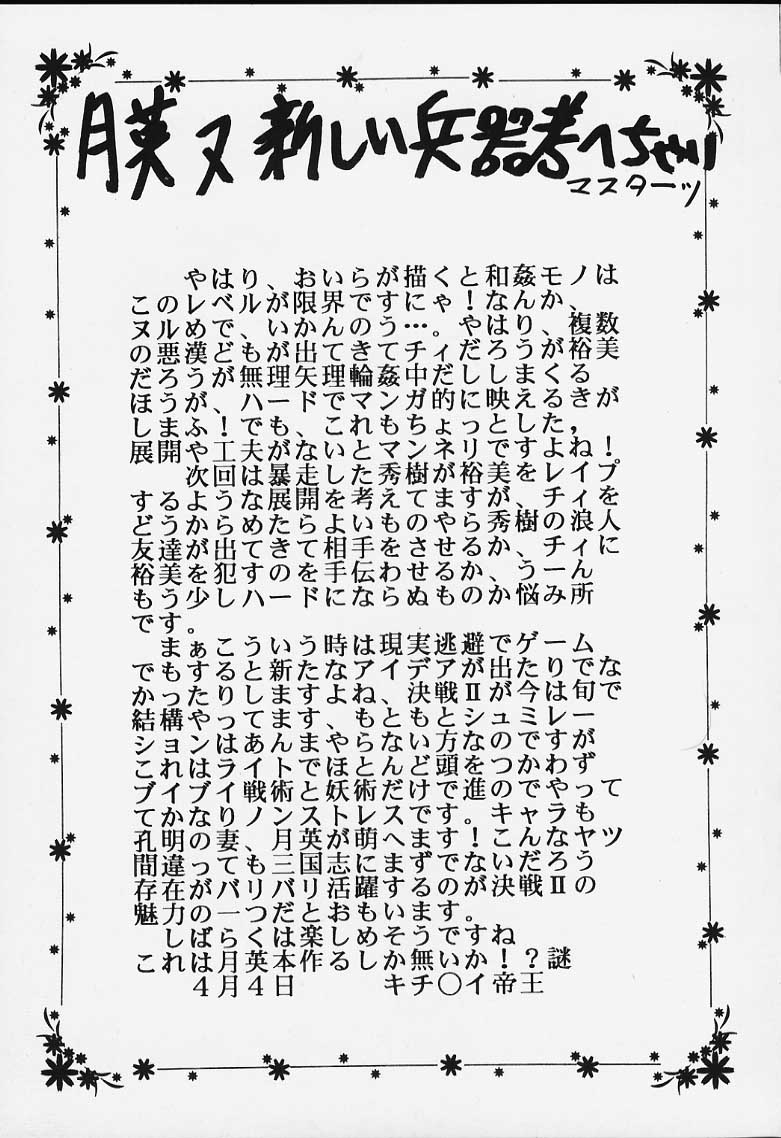 月英又新しい兵器考へちゃい
マスターッ
やはり、おいらが描くと和姦モノは
このレベルが限界ですにゃ！なんか、
ヌルめで、いかんのう…。やはり、複数
の悪漢どもが出てきてチィだろうが裕美
だろうが、無理矢理輪姦中だしまくる
ほうが、ハードでマンガ的に映えるきが
しまふ！でも、これもちょっとした，
展開や工夫がないとマンネリですよね！
次回は暴走した秀樹が裕美をレイプ
するような展開を考えてますが、チィを
どうからめたらよいものやら秀樹の浪人
友達が出てきて相手をさせるか、チィに
裕美を犯すのを手伝わせるか、うーん
もう少しハードにならぬものか悩み所
です。
まぁこういう時は現実逃避でゲーム
でもすると新たなアイデアが出たりでな
かったりしますよね、決戦Ⅱが今は旬で
結構やってます、もともとシュミレー
ションはあんまやらない方なのですが
これはライトでほとんど頭をつかわず
ブイブイ戦術と妖術だけで進のでやって
てかなりノンストレスです。キャラも
孔明の妻、月英が萌へます！こんなヤツ
間違っても三国志にまずでないだろう
存在がバリバリ活躍するのが決戦Ⅱの
魅力の一つだとおもいます。
しばらくは楽しめそうですね
これは月英本作るしか無いか！？謎
４月４日　キチ〇イ帝王